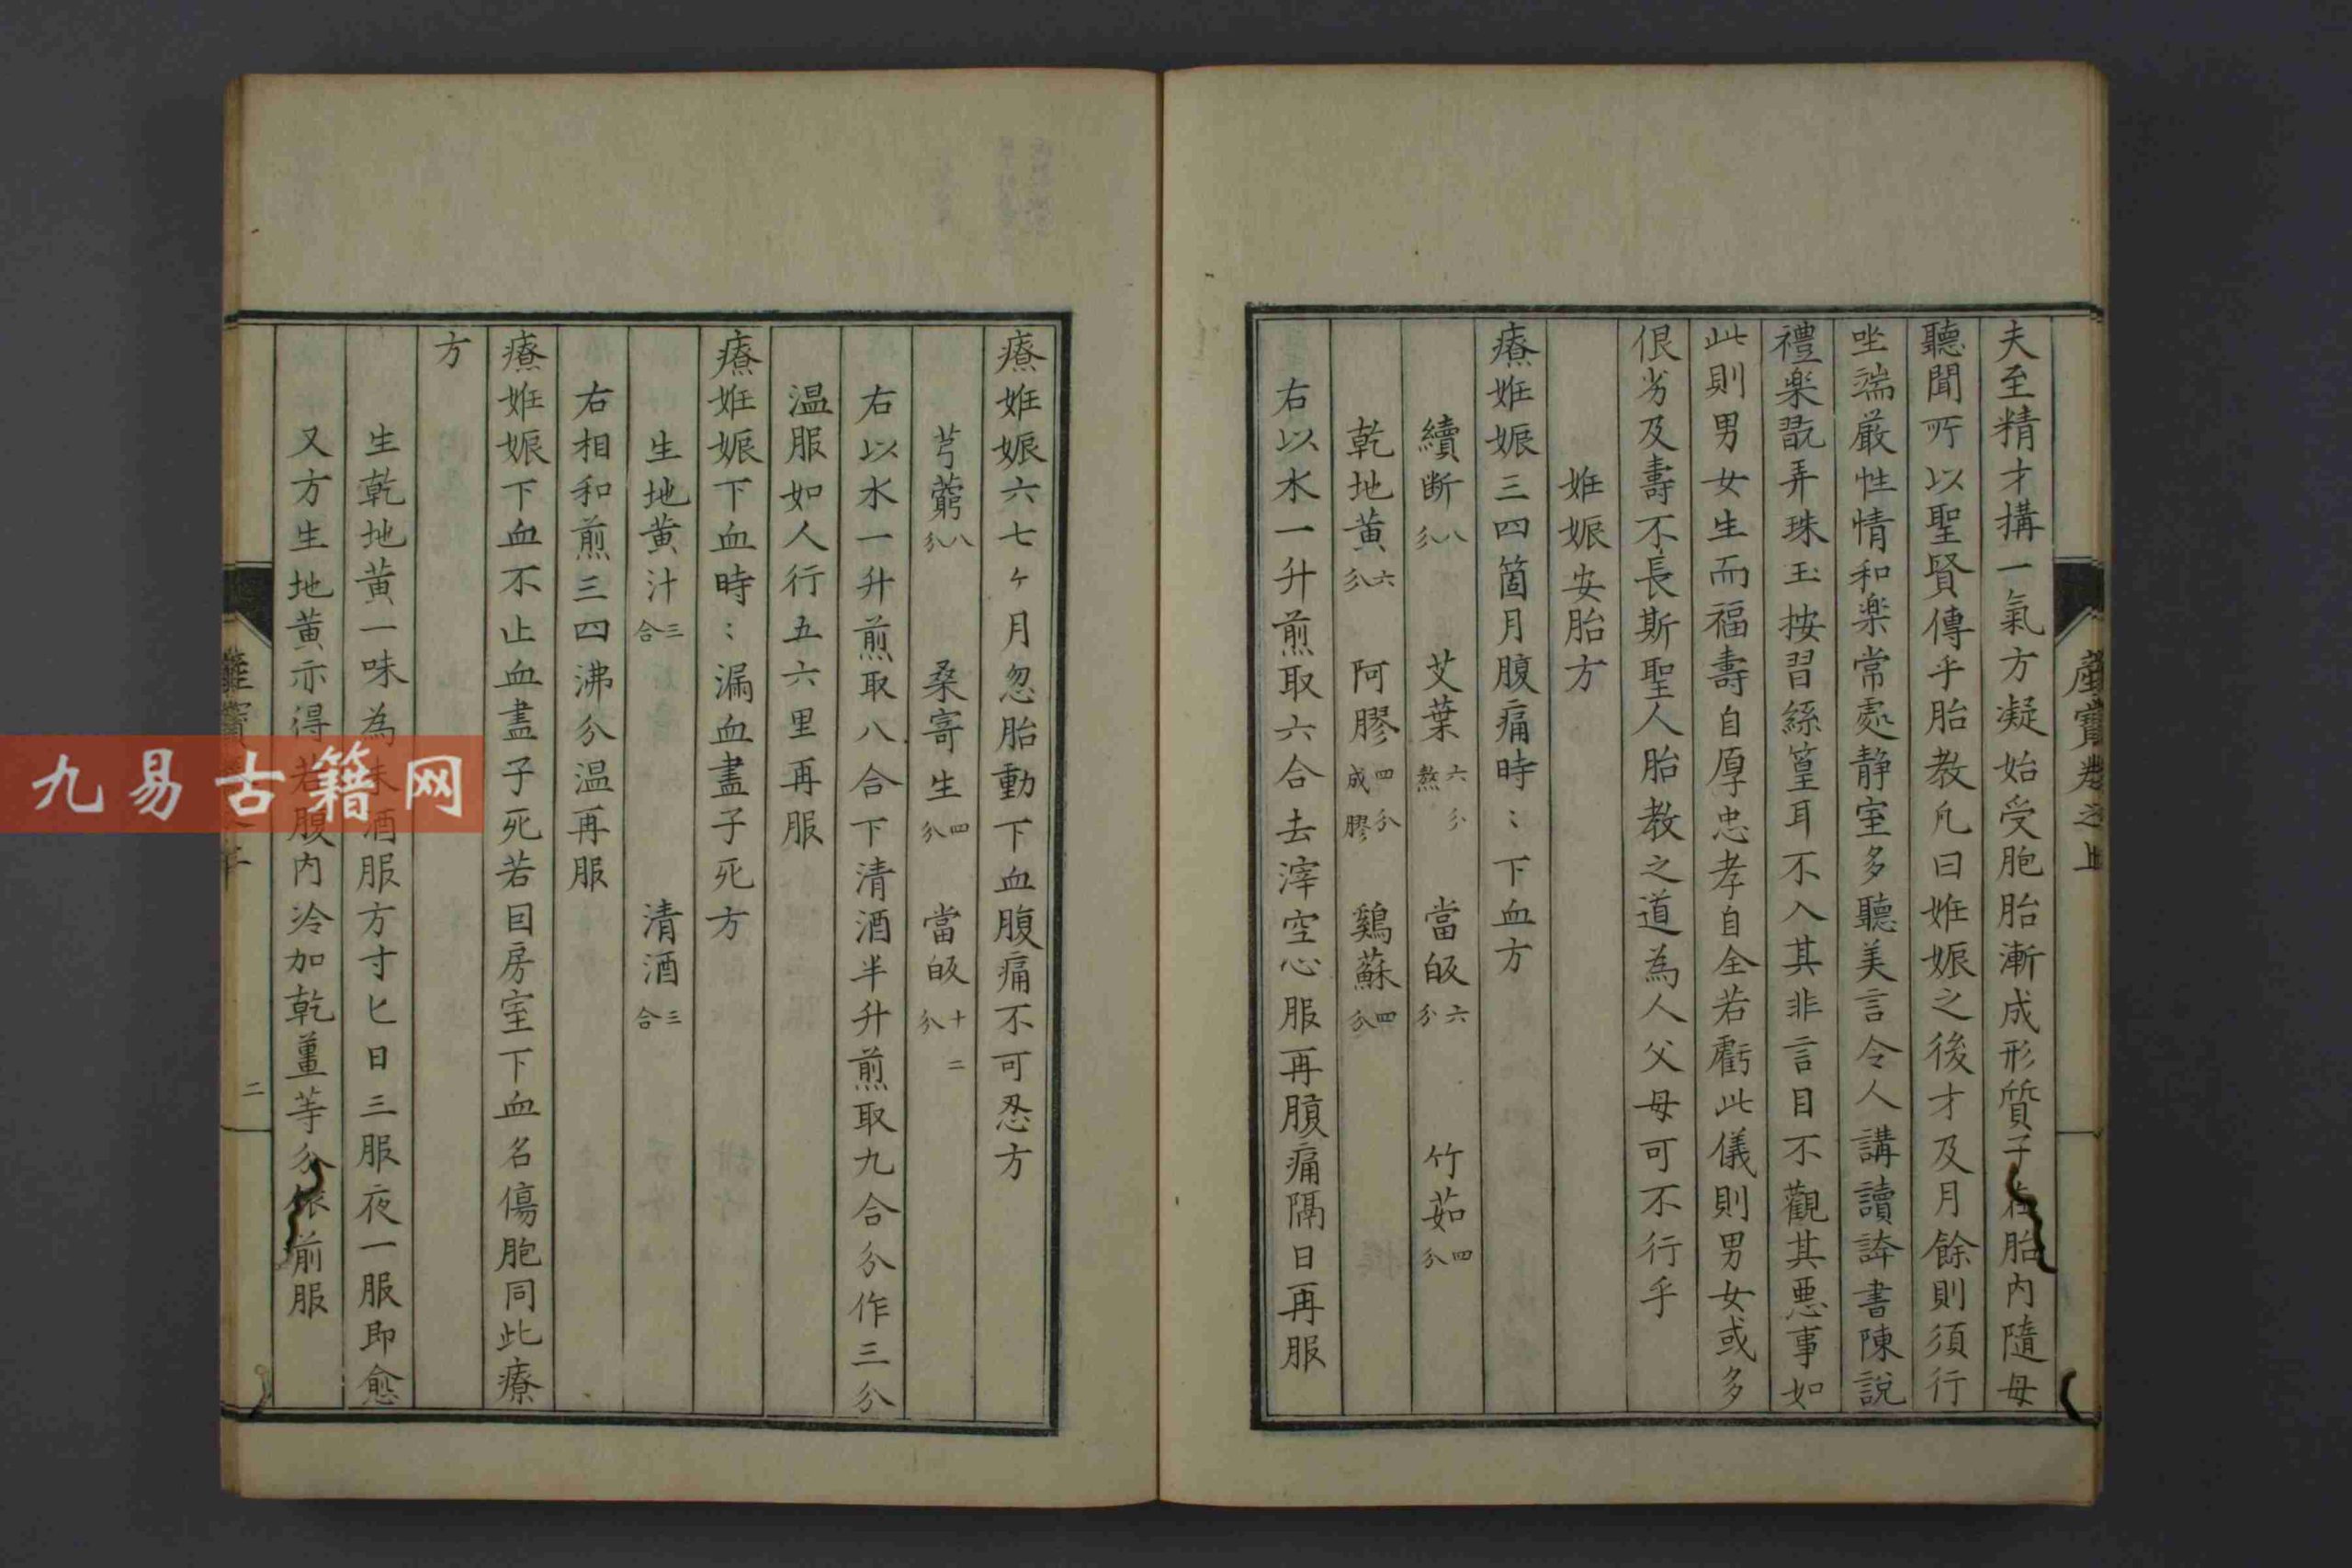 産寶卷之上
夫至精才搆一氣方凝始受胞胎漸成形質子在胎內隨母
聽聞所以聖賢傳乎胎教凢曰姙娠之後才及月餘則須行
坐端嚴性情和楽常處静室多聽美言令人講讀詩書陳說
禮楽翫弄珠玉按習絲篁耳不入其非言目不觀其悪事如
此則男女生而福壽自厚忠孝自全若虧此儀則男女或多
佷劣及壽不長斯聖人胎教之道為人父母可不行乎
姙娠安胎方
療姙娠三四箇月腹痛時〻下血方
續断八分 艾葉六分熬 當皈六分 竹茹四分
乾地黄六分 阿膠四分成膠 鷄蘇四分
右以水一升煎取六合去滓空心服再腹痛隔日再服
療姙娠六七ケ月忽胎動下血腹痛不可忍方
芎藭八分 桑寄生四分 當皈十二分
右以水一升煎取八合下清酒半升煎取九合分作三分
温服如人行五六里再服
療姙娠下血時〻漏血盡子死方
生地黄汁三合 清酒三合
右相和煎三四沸分温再服
療姙娠下血不止血盡子死若囙房室下血名傷胞同此療
方
生乾地黄一味為末酒服方寸匕日三服夜一服即愈
又方生地黄亦得若腹内冷加乾薑等分依前服
二
九易古籍网